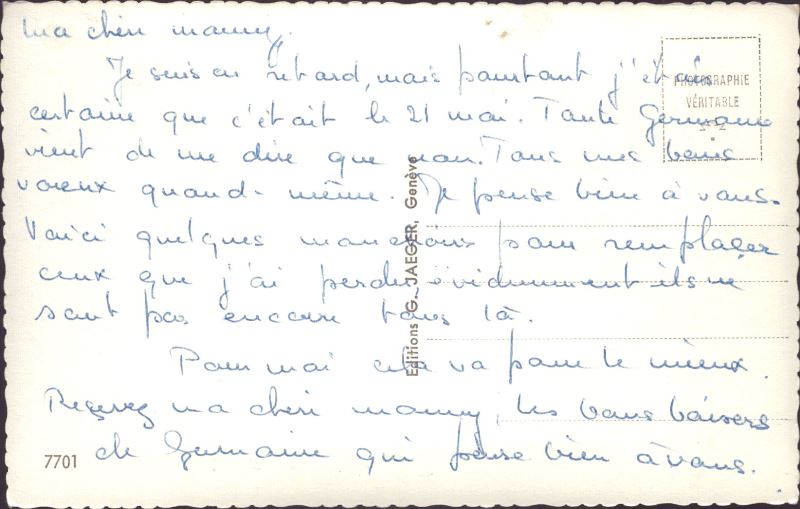 Ma chéri mamy,
Je suis en retard, mais pourtant j'étais
certaine que c'était le 21 mai. Tante Germaine
vient de me dire que non. Tous mes bons
voeux quand-même. Je pense bien à vous.
Voici quelques mouchoirs pour remplacer
ceux que j'ai perdu, évidemment ils ne
sont pas encore tous là.
Pour moi cela va pour le mieux.
Reçevez ma chéri mamy, les bons baisers
de Germaine qui pense bien à vous.
PHOTOGRAPHIE
VÉRITABLE
Editions G. JAEGER, Genève
7701